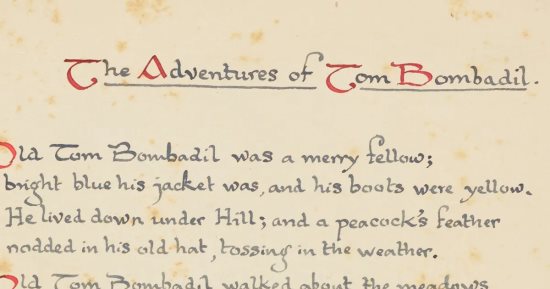 The Adventures of Tom Bombadil.
Old Tom Bombadil was a merry fellow;
bright blue his jacket was, and his boots were yellow.
He lived down under Hill; and a peacock's feather
nodded in his old hat, tossing in the weather.
Old Tom Bombadil walked about the meadows